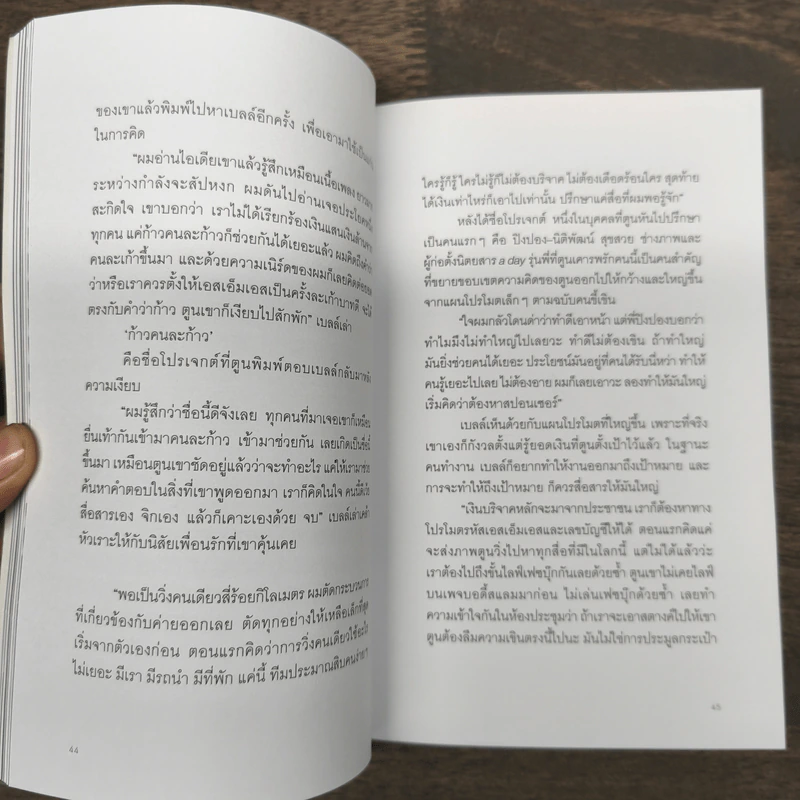 ของเขาแล้วพิมพ์ไปหาเบลล์อีกครั้ง เพื่อเอามาใช้เป็น
ในการคิด
“ผมอ่านไอเดียเขาแล้วรู้สึกเหมือนเนื้อเพลง
ระหว่างกำลังจะสัปหงก ผมดันไปอ่านเจอประโยคหนึ่ง
สะกิดใจ เขาบอกว่า เราไม่ได้เรียกร้องเงินแสนเงินล้านจาก
ทุกคน แค่ก้าวคนละก้าวก็ช่วยกันได้เยอะแล้ว ผมคิดถึงคำว่า
คนละเก้าขึ้นมา และด้วยความเนิร์ดของผมก็เลยคิดต่อ
ว่าหรือเราควรตั้งให้เอสเอ็มเอสเป็นครั้งละเก้าบาทดี จะได้
ตรงกับคำว่าก้าว ตูนเขาก็เงียบไปสักพัก” เบลล์เล่า
‘ก้าวคนละก้าว’
คือชื่อโปรเจกต์ที่ตูนพิมพ์ตอบเบลล์กลับมาหลัง
ความเงียบ
“ผมรู้สึกว่าชื่อนี้ดีจังเลย ทุกคนที่มาเจอเขาก็เหมือน
ยื่นเท้ากันเข้ามาคนละก้าว เข้ามาช่วยกัน เลยเกิดเป็นชื่อนี้
ขึ้นมา เหมือนตูนเขาชัดอยู่แล้วว่าจะทำอะไร แค่ให้เรามาช่วย
ค้นหาคำตอบในสิ่งที่เขาพูดออกมา เราก็คิดในใจ คนนี้ดีเว้ย
สื่อสารเอง จิกเอง แล้วก็เคาะเองด้วย จบ” เบลล์เล่าเคล้า
หัวเราะให้กับนิสัยเพื่อนรักที่เขาคุ้นเคย
“พอเป็นวิ่งคนเดียวสี่ร้อยกิโลเมตร ผมตัดกระบวนการ
ที่เกี่ยวข้องกับค่ายออกเลย ตัดทุกอย่างให้เหลือเล็กที่สุด
เริ่มจากตัวเองก่อน ตอนแรกคิดว่าการวิ่งคนเดียวใช้อะไร
ไม่เยอะ มีเรา มีรถนำ มีที่พัก แค่นี้ ทีมประมาณสิบคน
44
ใครรู้ก็รู้ ใครไม่รู้ก็ไม่ต้องบริจาค ไม่ต้องเดือดร้อนใคร สุดท้าย
ได้เงินเท่าไหร่ก็เอาไปเท่านั้น ปรึกษาแค่สื่อที่ผมพอรู้จัก”
หลังได้ชื่อโปรเจกต์ หนึ่งในบุคคลที่ตูนหันไปปรึกษา
เป็นคนแรกๆ คือ ปิงปอง-นิติพัฒน์ สุขสวย ช่างภาพและ
ผู้ก่อตั้งนิตยสาร a day รุ่นพี่ที่ตูนเคารพรักคนนี้เป็นคนสำคัญ
ที่ขยายขอบเขตความคิดของตูนออกไปให้กว้างและใหญ่ขึ้น
จากแผนโปรโมตเล็กๆ ตามฉบับคนขี้เขิน
“ใจผมกลัวโดนด่าว่าทำดีเอาหน้า แต่พี่ปิงปองบอกว่า
ทำไมมึงไม่ทำใหญ่ไปเลยวะ ทำดีไม่ต้องเขิน ถ้าทำใหญ่
มันยิ่งช่วยคนได้เยอะ ประโยชน์มันอยู่ที่คนได้รับนี่หว่า ทำให้
คนรู้เยอะไปเลย ไม่ต้องอาย ผมก็เลยเอาวะ ลองทำให้มันใหญ่
เริ่มคิดว่าต้องหาสปอนเซอร์”
เบลล์เห็นด้วยกับแผนโปรโมตที่ใหญ่ขึ้น เพราะที่จริง
เขาเองก็กังวลตั้งแต่รู้ยอดเงินที่ตูนตั้งเป้าไว้แล้ว ในฐานะ
คนทำงาน เบลล์ก็อยากทำให้งานออกมาถึงเป้าหมาย และ
การจะทำให้ถึงเป้าหมาย ก็ควรสื่อสารให้มันใหญ่
“เงินบริจาคหลักจะมาจากประชาชน เราก็ต้องหาทาง
โปรโมตรหัสเอสเอ็มเอสและเลขบัญชีให้ได้ ตอนแรกคิดแค่
จะส่งภาพตูนวิ่งไปหาทุกสื่อที่มีในโลกนี้ แต่ไม่ได้แล้วว่ะ
เราต้องไปถึงขั้นไลฟ์เฟซบุ๊กกันเลยด้วยซ้ำ ตูนเขาไม่เคยไลฟ์
บนเพจบอดี้สแลมมาก่อน ไม่เล่นเฟซบุ๊กด้วยซ้ำ เลยทำ
ความเข้าใจกันในห้องประชุมว่า ถ้าเราจะเอาสตางค์ไปให้เขา
ตูนต้องลืมความเขินตรงนี้ไปนะ มันไม่ใช่การประมูลกระเป๋า
45